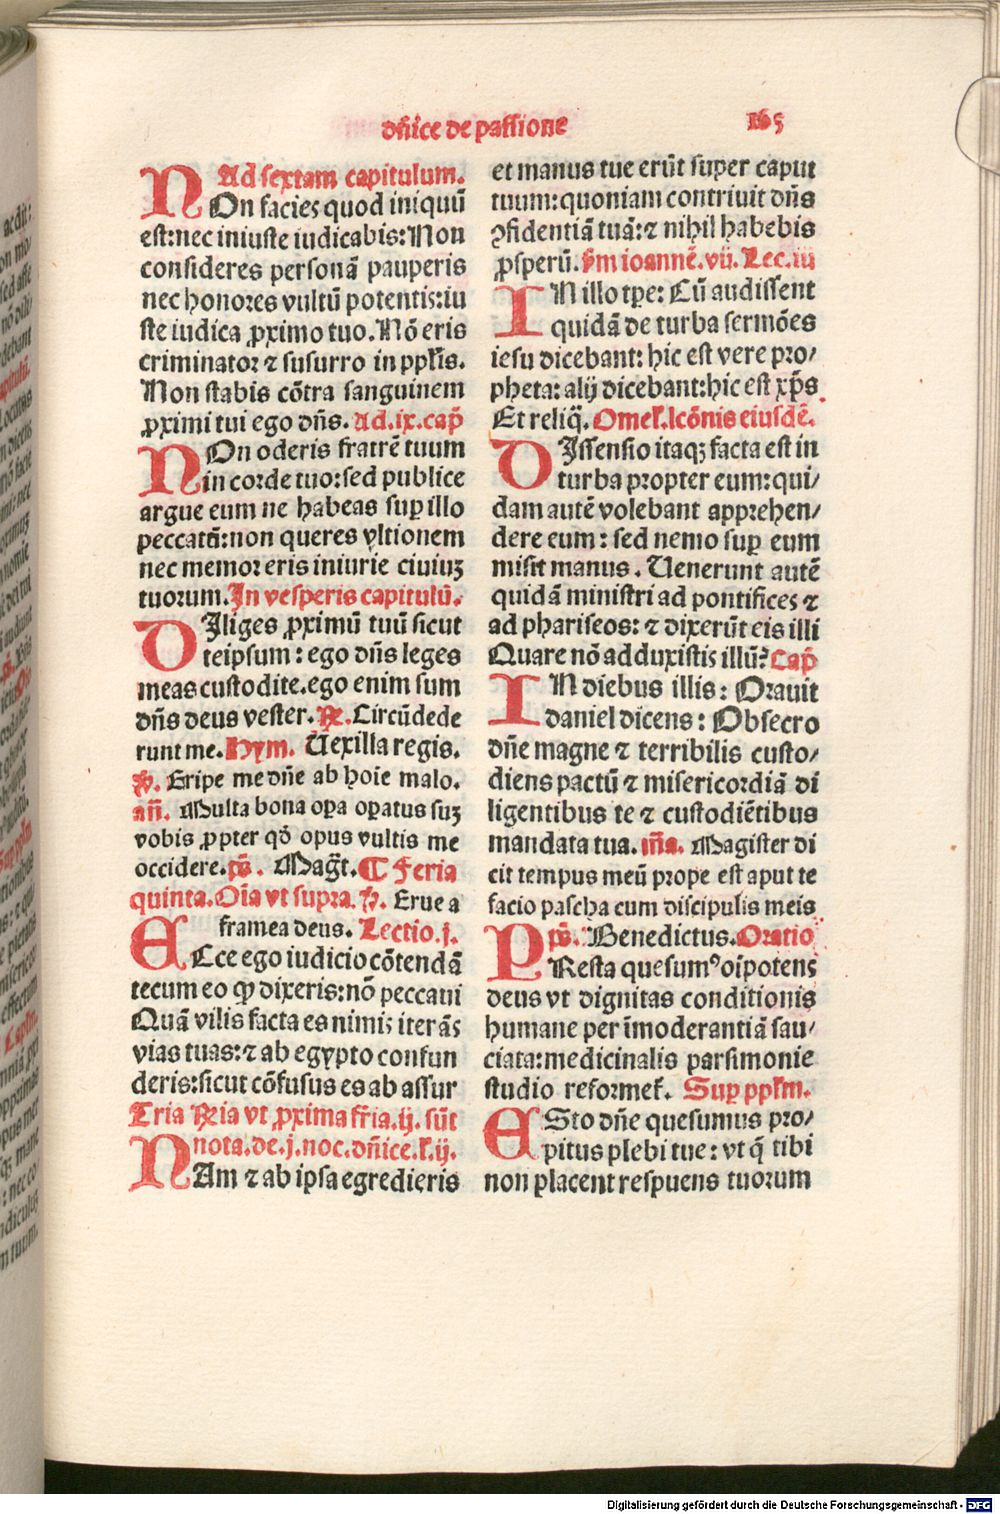 dñice de passione 165
Ad sextam capitulum.
NOn facies quod iniquū
est:nec iniuste iudicabis:Non
consideres personā pauperis
nec honores vultū potentis:iu
ste iudica ꝓximo tuo.Nō eris
criminator ⁊ susurro in ppl̄is.
Non stabis cōtra sanguinem
ꝓximi tui ego dñs. Ad.ix.cap̄
NOn oderis fratrē tuum
in corde tuo:sed publice
argue eum ne habeas suꝑ illo
peccatū:non queres vltionem
nec memor eris iniurie ciuiuꝫ
tuorum. In vesperis capitulū.
DJliges ꝓximū tuū sicut
teipsum : ego dñs leges
meas custodite.ego enim sum
dñs deus vester. ℟. Circūdede
runt me. Hym. Uexilla regis.
℣. Eripe me dñe ab hoīe malo.
añ. Multa bona oꝑa oꝑatus suꝫ
vobis ꝓpter qō opus vultis me
occidere. p̄s. Mag̃t. ¶ Feria
quinta. Oīa vt supra. ℣. Erue a
framea deus. Lectio.j.
ECce ego iudicio cōtendā
tecum eo ꝙ dixeris:nō peccaui
Quā vilis facta es nimis iterās
vias tuas:⁊ ab egypto confun
deris:sicut cōfusus es ab assur
Tria ℟ia vt ꝓxima fr̄ia.ij. sūt
nota.de.j.noc.dñice.l̄.ij.
NAm ⁊ ab ipsa egredieris
et manus tue erūt super caput
tuum:quoniam contriuit dñs
ꝯfidentiā tuā:⁊ nihil habebis
ꝓsperū. s̄m ioannē.vij. Lec.iij
IN illo tp̄e: Cū audissent
quidā de turba sermōes
iesu dicebant: hic est vere pro/
pheta: alij dicebant:hic est xp̄s
Et reliq̄. Omel̄.lcōnis eiusdē.
DJssensio itaqꝫ facta est in
turba propter eum:qui/
dam autē volebant apprehen/
dere eum : sed nemo suꝑ eum
misit manus . Uenerunt autē
quidā ministri ad pontifices ⁊
ad phariseos: ⁊ dixerūt eis illi
Quare nō adduxistis illū? Cap̄
IN diebus illis : Orauit
daniel dicens : Obsecro
dñe magne ⁊ terribilis custo/
diens pactū ⁊ misericordiā di
ligentibus te ⁊ custodiētibus
mandata tua. im̄a. Magister di
cit tempus meū prope est aput te
facio pascha cum discipulis meis
p̄s. Benedictus. Oratio
PResta quesumꝰ oīpotens
deus vt dignitas conditionis
humane per īmoderantiā sau/
ciata:medicinalis parsimonie
studio reformet̄. Suꝑ ppl̄m.
ESto dñe quesumus pro/
pitus plebi tue : vt q̄ tibi
non placent respuens tuorum
Digitalisierung gefördert durch die Deutsche Forschungsgemeinschaft - DFG